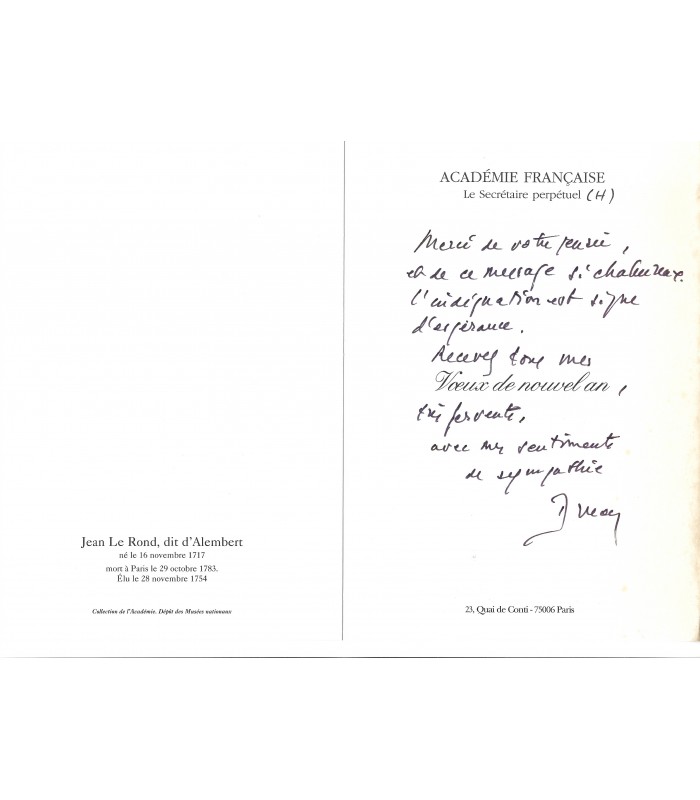 Jean Le Rond, dit d'Alembert
né le 16 novembre 1717
mort à Paris le 29 octobre 1783.
Élu le 28 novembre 1754
Collection de l'Académie. Dépôt des Musées nationaux
ACADÉMIE FRANÇAISE
Le Secrétaire perpétuel (H)
Merci de votre pensée,
et de ce message si chaleureux.
L'indignation est signe
d'espérance.
Recevez tous mes
Vœux de nouvel an,
très fervents,
avec mes sentiments
de sympathie
23, Quai de Conti - 75006 Paris